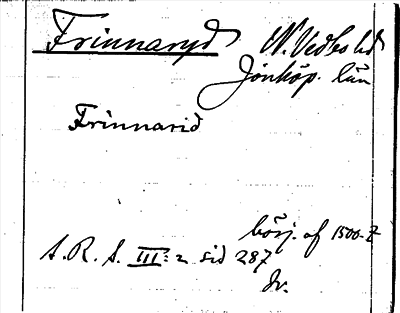 Frinnaryd N. Vedbo hd
Jönköp. län
Frinnarid
börj. af 1500-t
S. R. S. III:2 sid 287